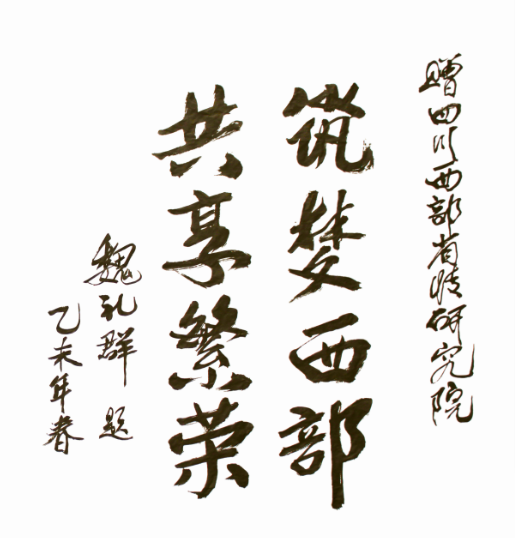 赠四川西部省情研究院
筑梦西部
共享繁荣
魏礼群 题
乙未年春